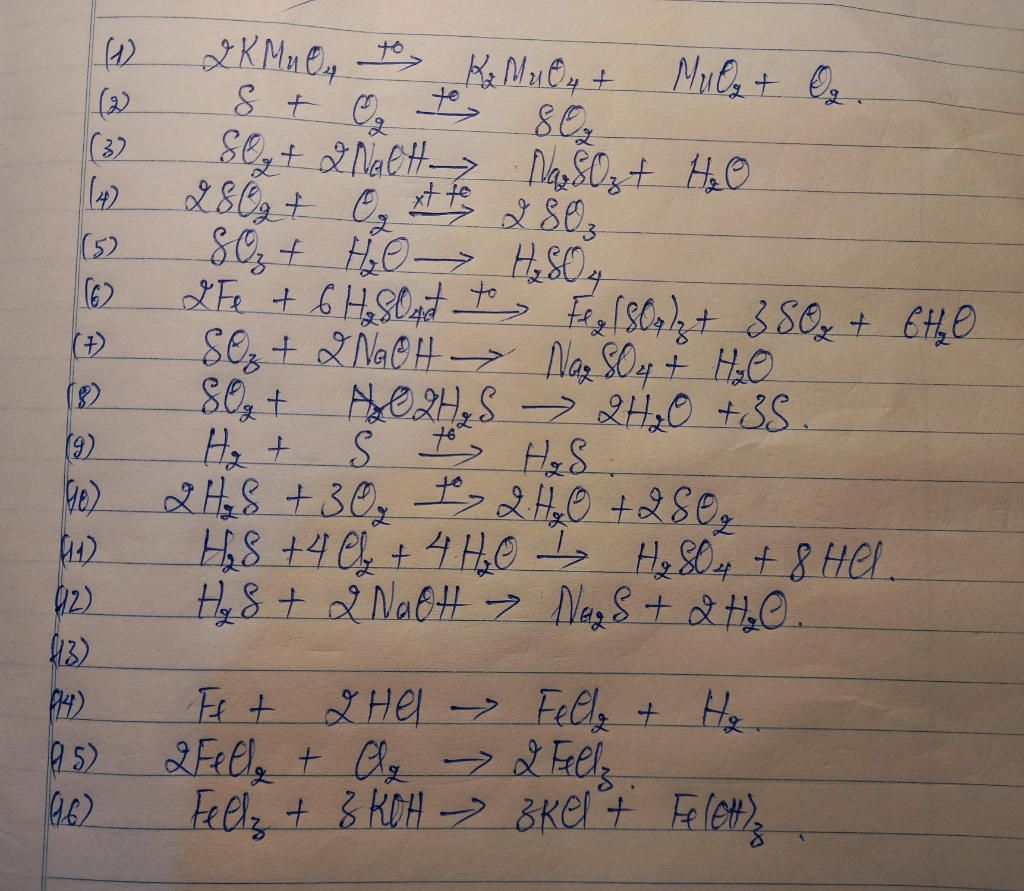 (1) 2KMnO₄ →(t°) K₂MnO₄ + MnO₂ + O₂.
(2) S + O₂ →(t°) SO₂
(3) SO₂ + 2NaOH → Na₂SO₃ + H₂O
(4) 2SO₂ + O₂ →(xt t°) 2SO₃
(5) SO₃ + H₂O → H₂SO₄
(6) 2Fe + 6H₂SO₄đ →(t°) Fe₂(SO₄)₃ + 3SO₂ + 6H₂O
(7) SO₃ + 2NaOH → Na₂SO₄ + H₂O
(8) SO₂ + 2H₂S → 2H₂O + 3S.
(9) H₂ + S →(t°) H₂S.
(10) 2H₂S + 3O₂ →(t°) 2H₂O + 2SO₂
(11) H₂S + 4Cl₂ + 4H₂O → H₂SO₄ + 8HCl.
(12) H₂S + 2NaOH → Na₂S + 2H₂O.
(13)
(14) Fe + 2HCl → FeCl₂ + H₂.
(15) 2FeCl₂ + Cl₂ → 2FeCl₃.
(16) FeCl₃ + 3KOH → 3KCl + Fe(OH)₃.